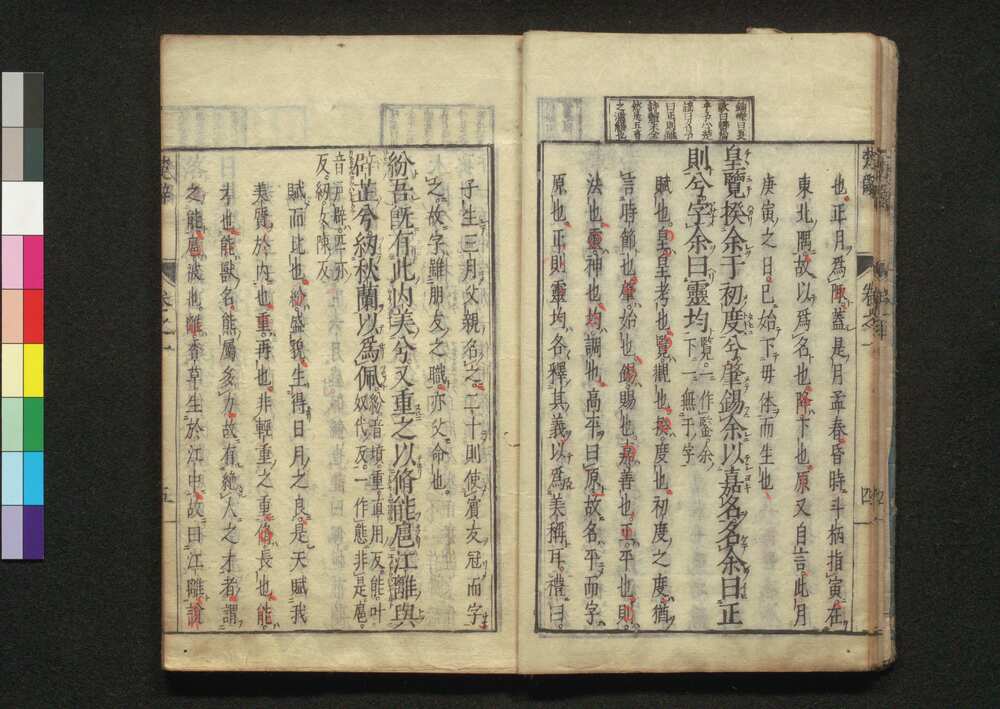 也正月爲陬蓋是月孟春昏時斗柄指寅在
東北隅故以爲名也降下也原又自言此月
庚寅之日已始下母体而生也
皇覽揆余于初度兮肇錫余以嘉名名余曰正
則兮字余曰靈均
覽一作鑒余
下一無于字
賦也皇皇考也覽觀也揆度也初度之度猶
言時節也肇始也錫賜也嘉善也正平也則
法也靈神也均調也高平曰原故名平而字
原也正則靈均各釋其義以爲美稱耳禮曰
楚辭
卷之一
四
子生三月父親名之二十則使賓友冠而字
之故字雖朋友之職亦父命也
紛吾旣有此內美兮又重之以脩能扈江離與
辟芷兮紉秋蘭以爲佩
紛音墳重直用反能叶
奴代反一作態非是扈
音戶辟匹亦
反紉女陳反
賦而比也紛盛貌生得日月之良是天賦我
美質於內也重再也非輕重之重脩長也能
才也能獸名熊屬多力故有絕人之才者謂
之能扈被也離香草生於江中故曰江離說
楚辭
卷之一
五